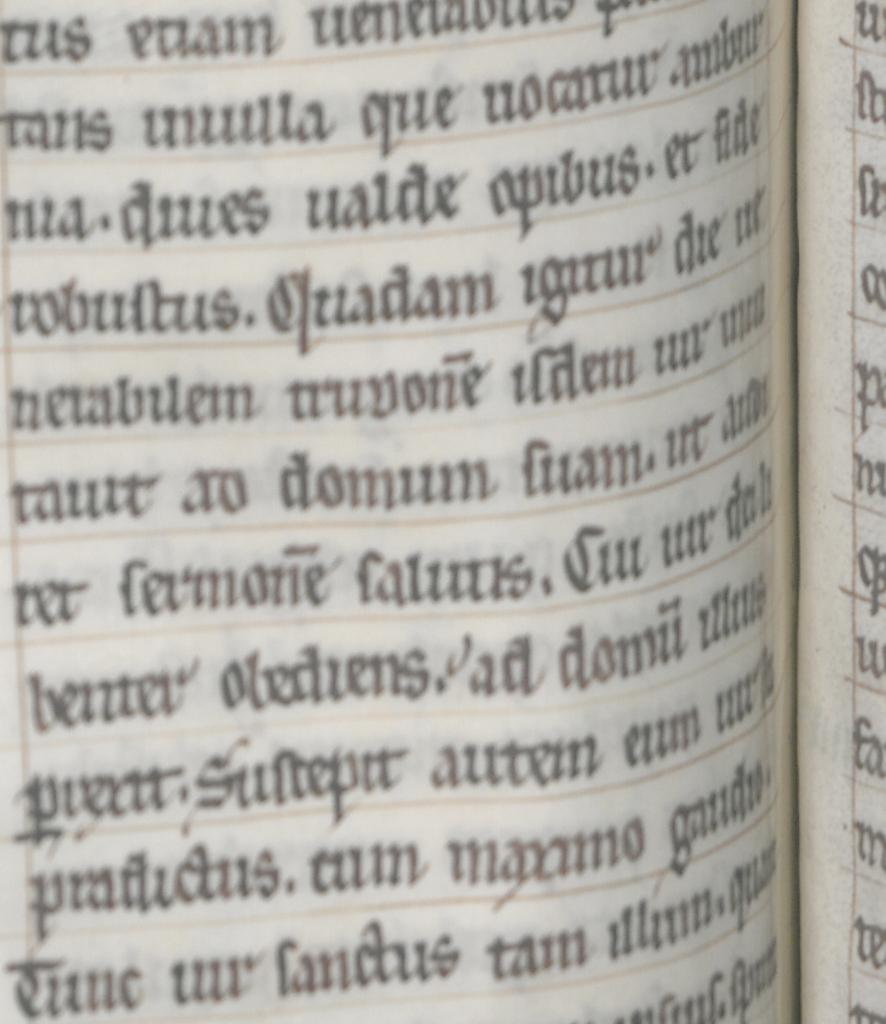 tus etiam uenerabilis
tans inuilla que uocatur ambur
nia. diues ualde opibus. et fide
robustus. Quadam igitur die ue
nerabilem truuonē isdem uir inui
tauit ad domum suam. ut audi
ret sermonē salutis. Cui uir dei li
benter obediens. ad domū illius
perrexit. Suscepit autem eum uir
praedictus. cum maximo gaudio.
Tunc uir sanctus tam illum. quam